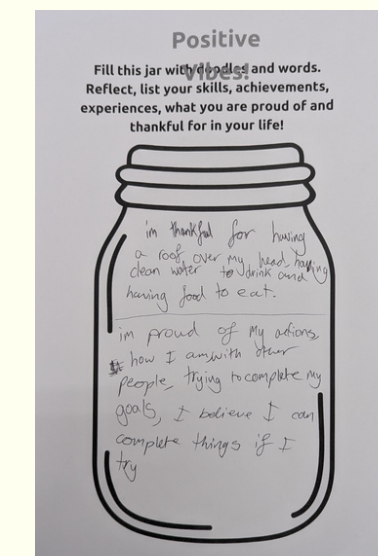 Positive
Vibes!
Fill this jar with doodles and words.
Reflect, list your skills, achievements,
experiences, what you are proud of and
thankful for in your life!
im thankful for having
a roof over my head, having
clean water to drink and
having food to eat.
im proud of my actions,
how I am with other
people, trying to complete my
goals, I believe I can
complete things if I
try